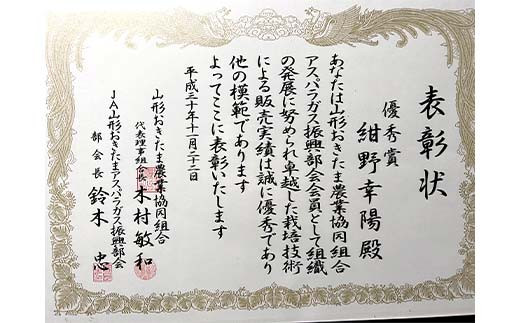 表彰状
優秀賞
紺野幸陽殿
あなたは山形おきたま農業協同組合
アスパラガス振興部会会員として組織
の発展に努められ卓越した栽培技術
による販売実績は誠に優秀であり
他の模範であります
よってここに表彰いたします
平成三十年十一月二十二日
山形おきたま農業協同組合
代表理事組合長 木村敏和
JA山形おきたまアスパラガス振興部会
部会長 鈴木忠